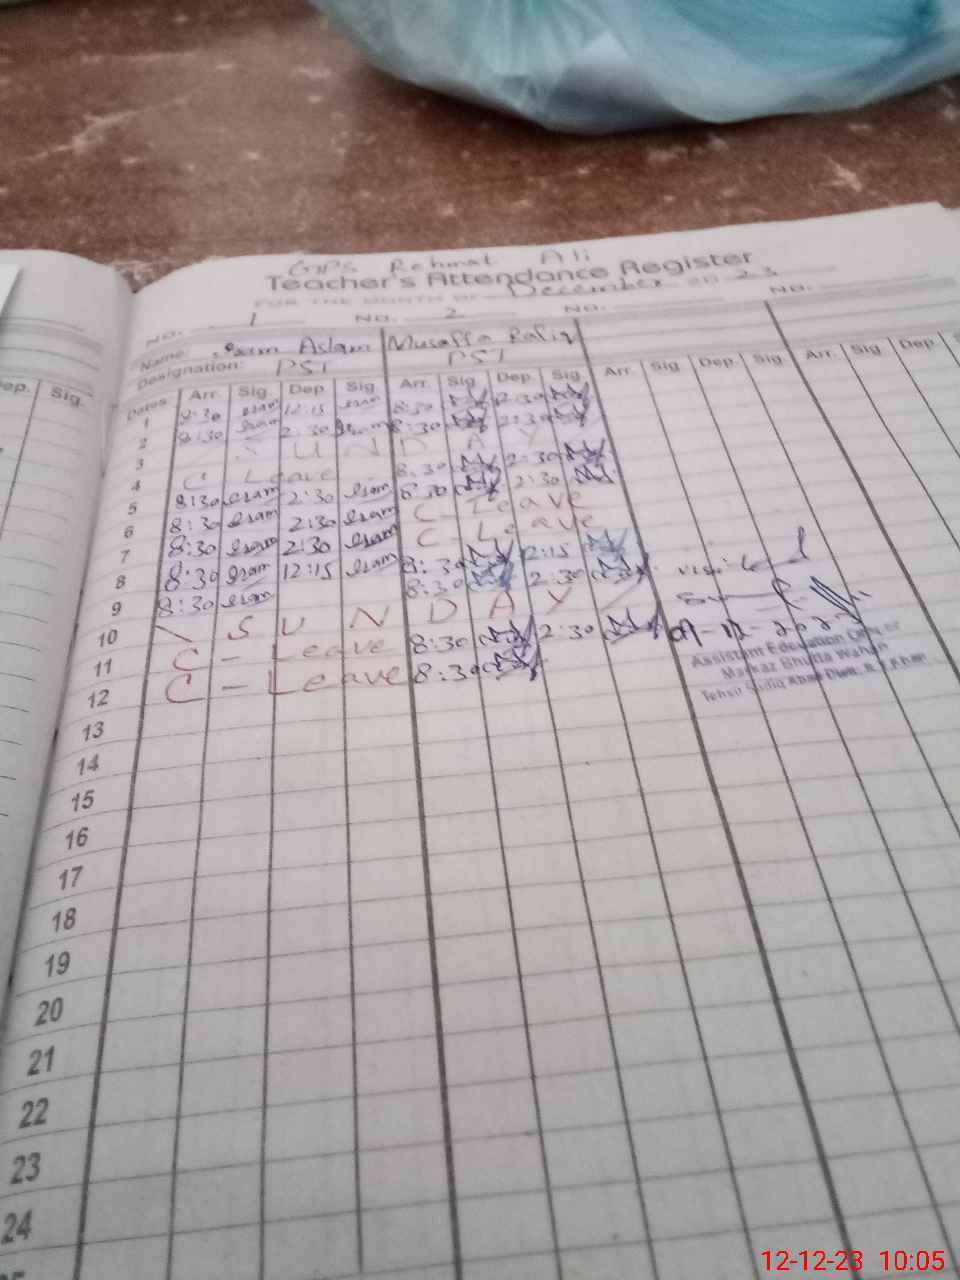 GPS Rehmat Ali
Teacher's Attendance Register
FOR THE MONTH OF December 23
NO. 1 NO. 2 NO. NO.
Name: Aslam Musaffa Rafiq
Designation: PST PST
Dates Arr. Sig. Dep. Sig. Arr. Sig. Dep. Sig. Arr. Sig. Dep. Sig. Arr. Sig. Dep.
ep. Sig.
1 8:30 12:15 8:30 2:30
2 8:30 2:30 8:30 2:30
3 SUNDAY
4 C Leave 8:30 2:30
5 8:30 2:30 8:30 2:30
6 8:30 2:30 C-Leave
7 8:30 2:30 C-Leave
8 8:30 12:15 8:30 12:15
9 8:30 8:30 2:30
10 SUNDAY
11 C-Leave 8:30 2:30
12 C-Leave 8:30
visited
09-12-2023
Assistant Education Officer
Markaz Bhutta Wahan
Tehsil Sadiq Abad Distt. R.Y.Khan
13
14
15
16
17
18
19
20
21
22
23
24
12-12-23 10:05